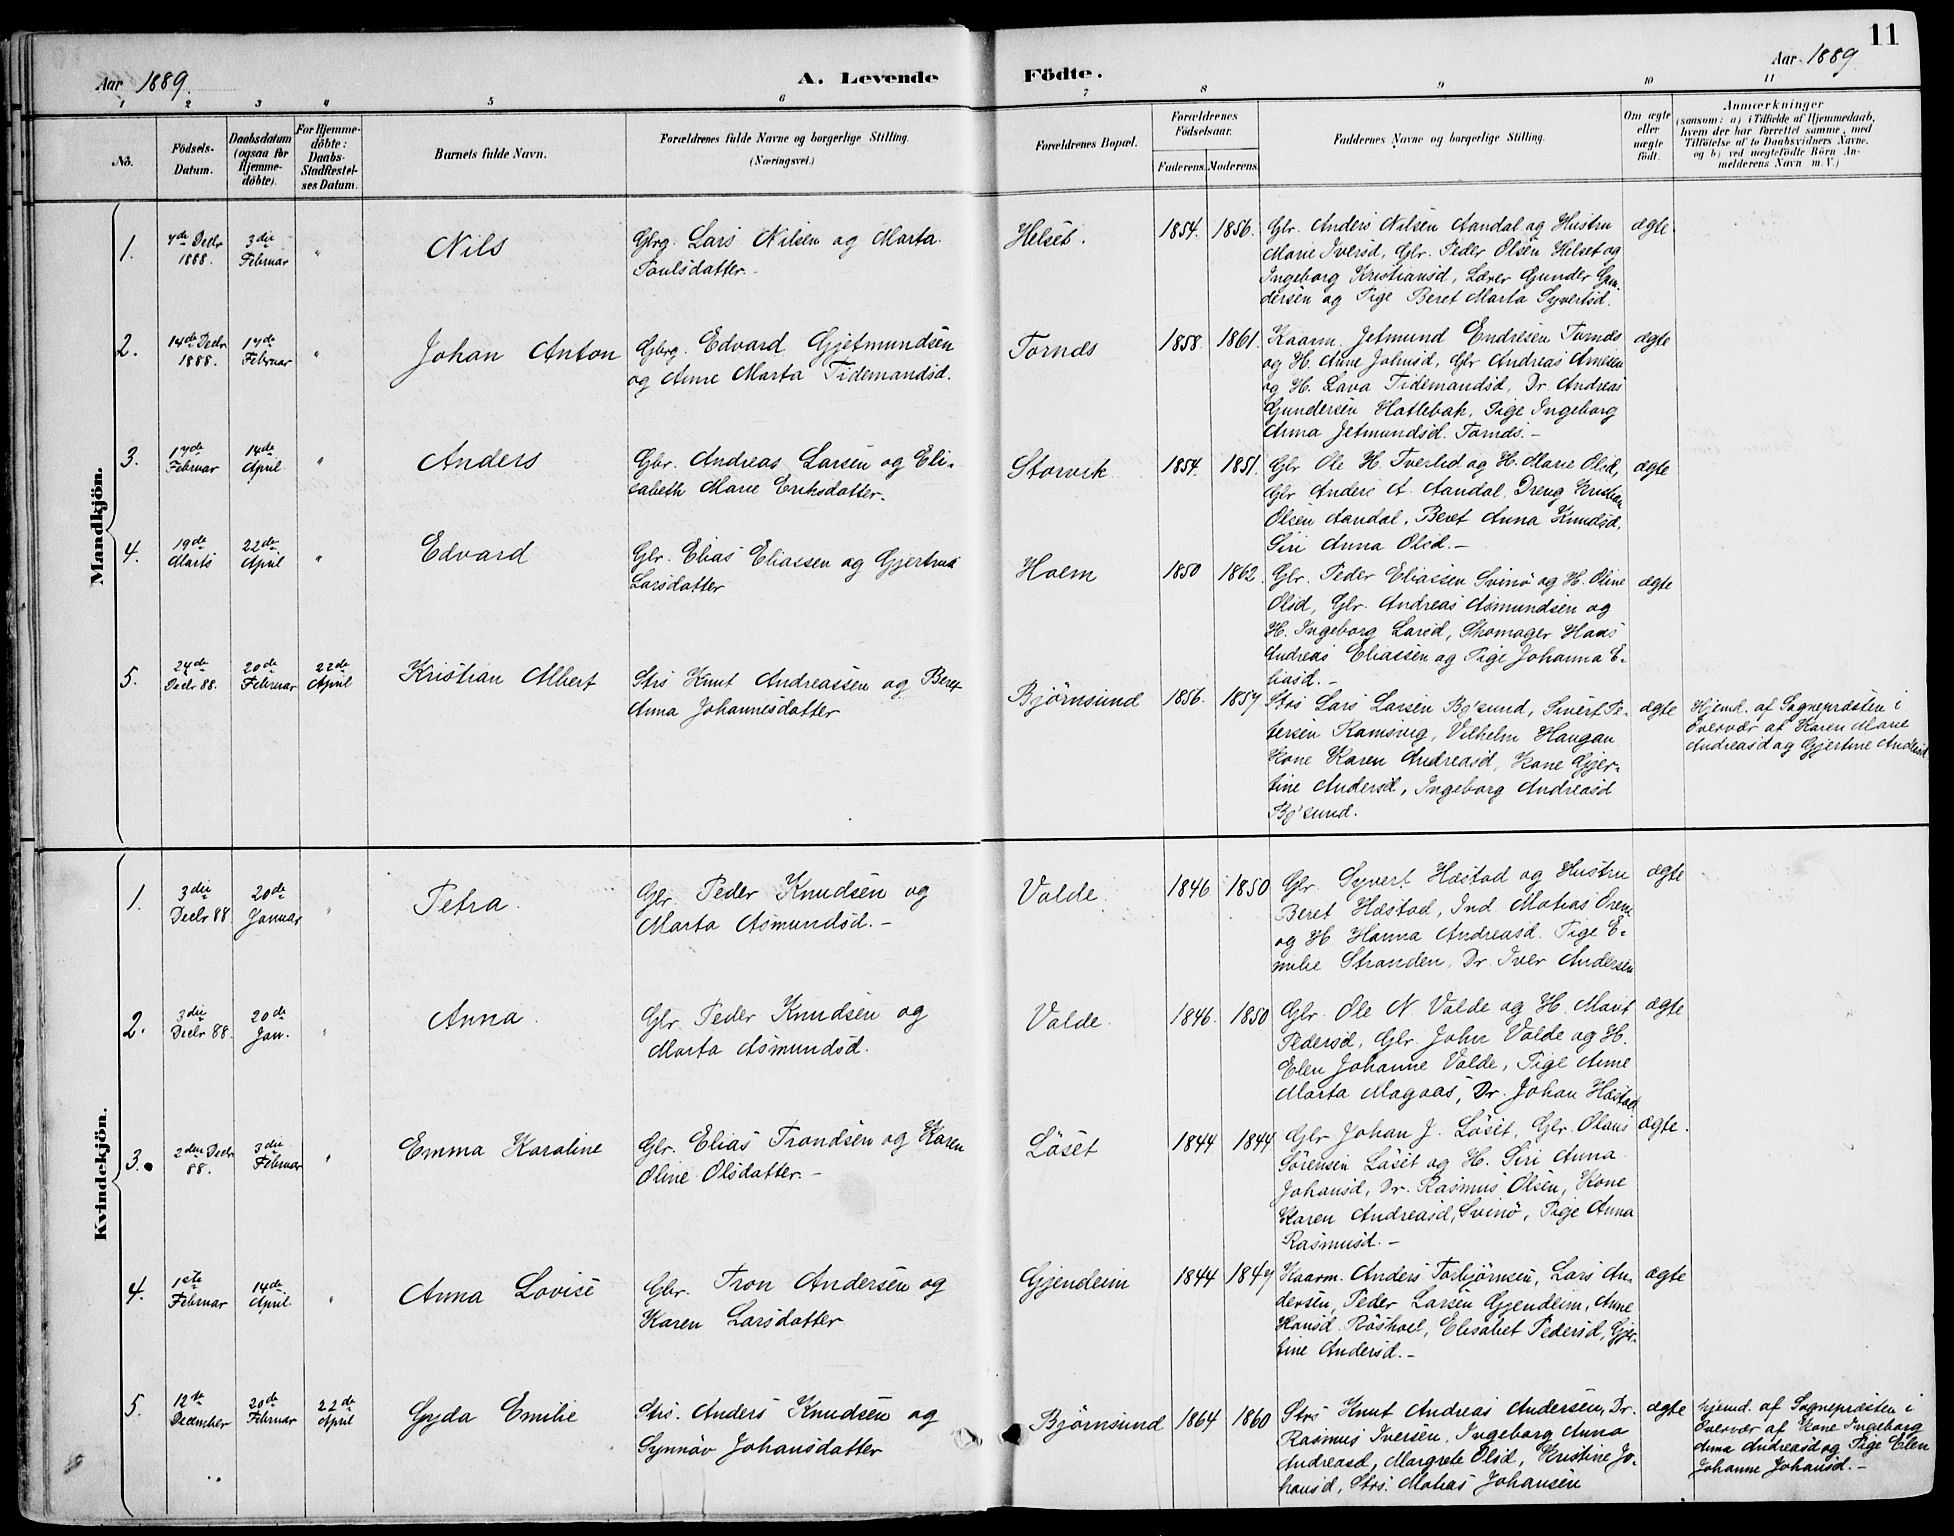 11
Aar 1889. A. Levende Födte. Aar 1889
1 2 3 4 5 6 7 8 9 10 11
No. Födsels-Datum. Daabsdatum (ogsaa for Hjemme-döbte). For Hjemme-döbte: Daabs-Stadfestel-ses Datum. Barnets fulde Navn. Forældrenes fulde Navne og borgerlige Stilling. (Næringsvei.) Forældrenes Bopæl. Forældrenes Födselsaar. Faderens. Moderens. Faddernes Navne og borgerlige Stilling. Om ægte eller uægte födt. Anmærkninger (saasom: a) i Tilfælde af Hjemmedaab, hvem der har forrettet samme, med Tilföielse af to Daabsvidners Navne, og b) ved uægtefödte Börn An-melderens Navn m. V.)
Mandkjön.
1. 7de Decbr 1888. 3die Februar " Nils
Gbrg. Lars Nilsen og Marta
Poulsdatter.-
Helset. 1854. 1856.
Gbr. Anders Nilsen Aandal og Hustru
Marie Iversd, Gbr. Peder Olsen Helset og
Ingeborg Kristiansd, Lærer Gunder Gun-
dersen og Pige Beret Marta Syvertsd.
ægte
2. 14de Decbr 1888. 17de Februar " Johan Anton
Gbrg. Edvard Gjetmundsen
og Anne Marta Tidemandsd.
Tornæs 1858 1861.
Kaarm. Jetmund Endresen Tornæs
og H. Anne Johnsd, Gbr Andreas Arnesen
og H. Lava Tidemandsd, Dr. Andreas
Gundersen Hattebak, Pige Ingeborg
Anna Jetmundsd. Tornæs.-
ægte
3. 17de Februar 14de April " Anders
Gbr. Andreas Larsen og Eli-
sabeth Marie Eriksdatter.
Storvik 1854. 1851.
Gbr Ole H. Tverlid og H. Marie Olsd,
Gbr Anders A. Aandal, Dreng Kristian
Olsen Aandal, Beret Anna Knudsd.
Siri Anna Olsd.-
ægte
4. 19de Marts 22de April " Edvard
Gbr. Elias Eliassen og Gjertrud
Larsdatter
Holm 1850 1862.
Gbr. Peder Eliassen Svinö og H. Oline
Olsd, Gbr. Andreas Asmundsen og
H. Ingeborg Larsd, Skomager Hans
Andreas Eliassen og Pige Johanna E-
liasd.-
ægte
5. 24de Decbr 88. 20de Februar 22de April Kristian Albert
Strs Knut Andreassen og Beret
Anna Johannesdatter
Bjørnsund 1856. 1857.
Strs Lars Larsen Bj'sund, Sivert Pe-
tersen Ramsvig, Vilhelm Haugan
Kone Karen Andreasd, Kone Gjer-
tine Andersd, Ingeborg Andreasd
Bj'sund.
ægte
Hjemd. af Sognepræsten i
Overvær af Karen Marie
Andreasd og Gjertine Andersd
Kvindekjön.
1. 3die Decbr 88. 20de Januar " Petra.
Gbr. Peder Knudsen og
Marta Asmundsd.-
Valde. 1846 1850
Gbr. Syvert Hæstad og Hustru
Beret Hæstad, Ind. Matias Orene
og H. Hanna Andreasd. Pige E-
milie Stranden, Dr. Iver Andersen
ægte
2. 3die Decbr 88. 20de Jan. " Anna.
Gbr. Peder Knudsen og
Marta Asmundsd.
Valde. 1846. 1850
Gbr. Ole N. Valde og H. Marit
Pedersd, Gbr. John Valde og H.
Elen Johanne Valde, Pige Anne
Marta Magaas, Dr. Johan Hæstad
ægte
3. 2den Decbr 88. 3die Februar " Emma Karoline
Gbr. Elias Trondsen og Karen
Oline Olsdatter.-
Løset 1844 1844
Gbr Johan J. Løset, Gbr. Olaus
Sørensen Løset og H. Siri Anna
Johansd, Dr. Rasmus Olsen, Kone
Karen Andreasd, Svinö, Pige Anna
Rasmusd.-
ægte.
4. 1ste Februar 14de April. " Anna Lovise
Gbr. Tron Andersen og
Karen Larsdatter
Gjendeim 1844 1847
Kaarm. Anders Torbjørnsen, Lars An-
dersen, Peder Larsen Gjendeim, Anne
Hansd. Røshoel, Elisabet Pedersd, Gjer-
tine Andersd.-
ægte
5. 12te December 20de Februar 22de April Gyda Emilie
Strs. Anders Knudsen og
Synnøv Johansdatter
Bjørnsund 1864 1860
Strs Knut Andreas Andersen, Dr.
Rasmus Iversen, Ingeborg Anna
Andreasd, Margrete Olsd, Kristine Jo-
hansd, Strs. Matias Johansen
ægte
hjemd. af Sognepræsten i
Overvær af Kone Ingeborg
Anna Andreasd og Pige Elen
Johanne Johansd.-